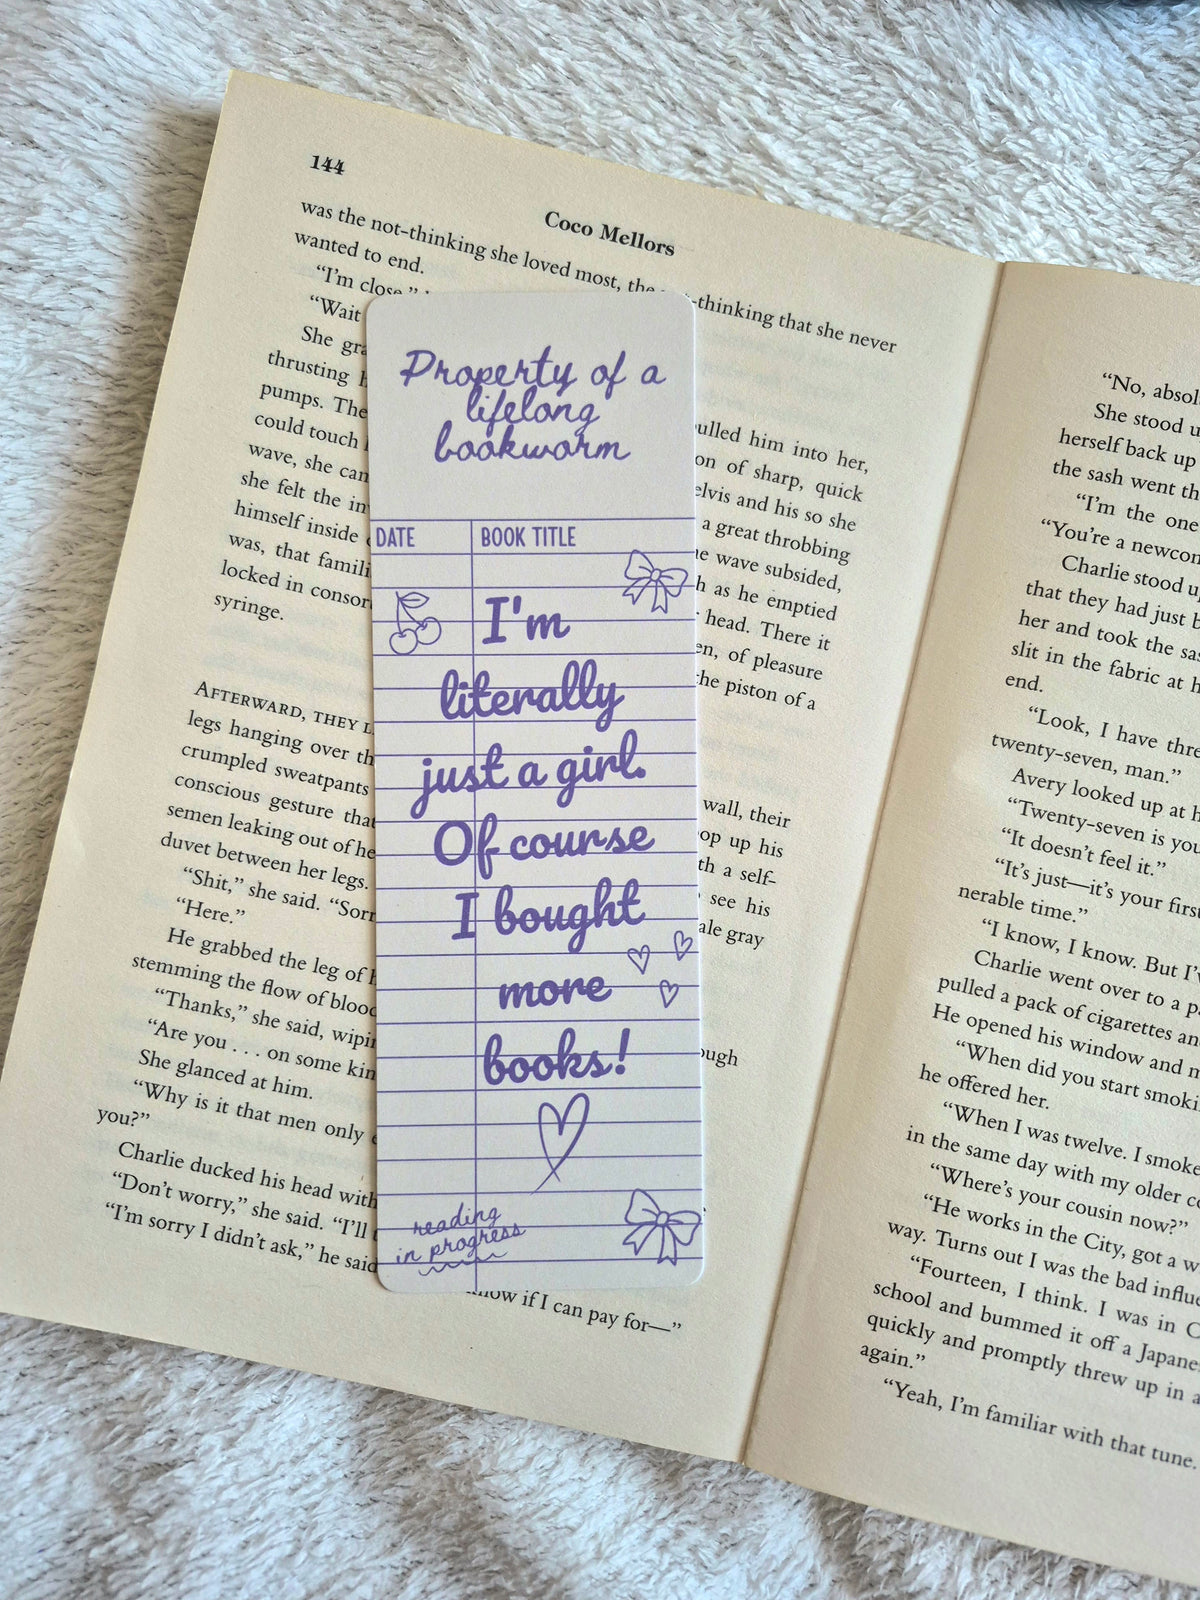 144
Coco Mellors
was the not-thinking she loved most, the not-thinking that she never
wanted to end.
"I'm close,"
"Wait
She gra
thrusting h
pumps. The
could touch
wave, she can
she felt the in
himself inside
was, that famili
locked in consor
syringe.
pulled him into her,
on of sharp, quick
elvis and his so she
a great throbbing
he wave subsided,
h as he emptied
head. There it
en, of pleasure
the piston of a
AFTERWARD, THEY L
legs hanging over th
crumpled sweatpants
conscious gesture that
semen leaking out of he
duvet between her legs.
"Shit," she said. "Sorr
"Here."
He grabbed the leg of h
stemming the flow of blood
"Thanks," she said, wipin
"Are you . . . on some kin
She glanced at him.
"Why is it that men only
you?"
Charlie ducked his head with
"Don't worry," she said. "I'll
"I'm sorry I didn't ask," he said
wall, their
op up his
th a self-
see his
ale gray
ough
know if I can pay for—"
Property of a
lifelong
bookworm
DATE BOOK TITLE
I'm
literally
just a girl.
Of course
I bought
more
books!
reading
in progress
"No, absol
She stood u
herself back up
the sash went th
"I'm the one
"You're a newcom
Charlie stood up
that they had just b
her and took the sas
slit in the fabric at h
end.
"Look, I have thre
twenty-seven, man."
Avery looked up at h
"Twenty-seven is you
"It doesn't feel it."
"It's just—it's your first
nerable time."
"I know, I know. But I'v
Charlie went over to a pa
pulled a pack of cigarettes an
He opened his window and m
he offered her.
"When did you start smoki
"When I was twelve. I smoke
in the same day with my older co
"Where's your cousin now?"
"He works in the City, got a w
way. Turns out I was the bad influe
"Fourteen, I think. I was in C
school and bummed it off a Japane
quickly and promptly threw up in a
again."
"Yeah, I'm familiar with that tune.